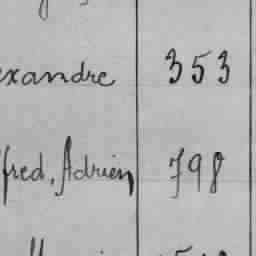 exandre 353
fred, Adrien 798